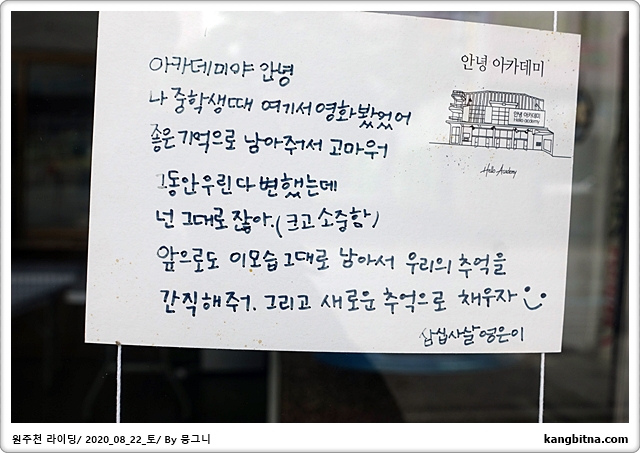 아카데미야 안녕
나 중학생때 여기서 영화봤었어
좋은 기억으로 남아주어서 고마워
그동안 우린 다 변했는데
넌 그대로잖아. (크고 소중함)
앞으로도 이모습 그대로 남아서 우리의 추억을
간직해줘. 그리고 새로운 추억으로 채우자
삼십사살 영은이
안녕 아카데미
안녕 아카데미
hello academy
Hello Academy
원주천 라이딩/ 2020_08_22_토/ By 뭉그니
kangbitna.com